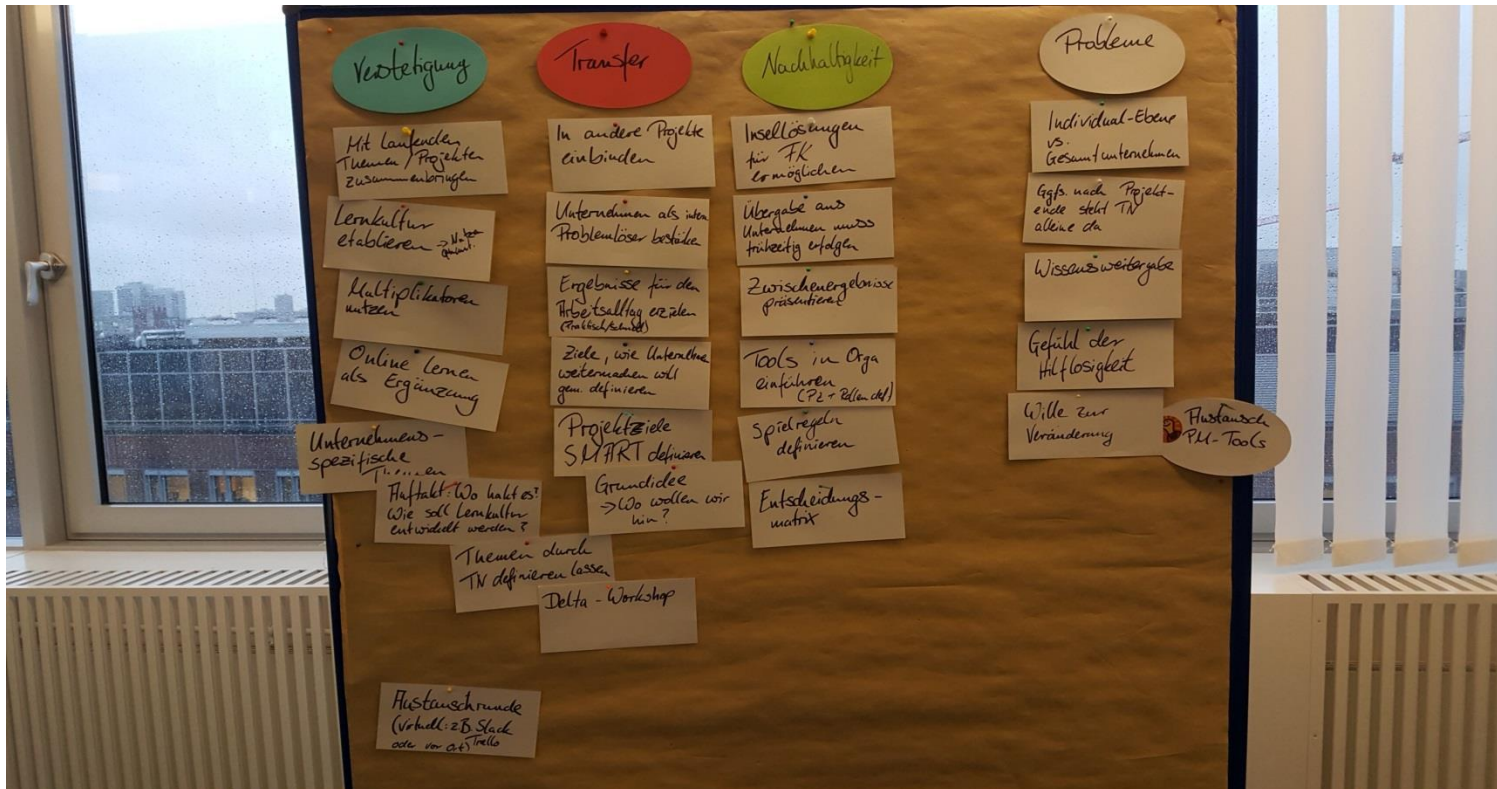 Verstetigung
Mit laufenden
Themen / Projekten
zusammenbringen
Lernkultur
etablieren ->
Multiplikatoren
nutzen
Online Lernen
als Ergänzung
Unternehmens-
spezifische
Auftakt: Wo hakt es?
Wie soll Lernkultur
entwickelt werden?
Themen durch
TN definieren lassen
Delta - Workshop
Austauschrunde
(virtuell: z.B. Slack
Trello
oder vor Ort)
Transfer
In andere Projekte
einbinden
Unternehmen als
Problemlöser bestärken
Ergebnisse für den
Arbeitsalltag erzielen
(Praktisch/schnell)
Ziele, wie Unternehmen
weitermachen will
gem. definieren
Projektziele
SMART definieren
Grundidee
-> Wo wollen wir
hin?
Nachhaltigkeit
Insellösungen
für FK
ermöglichen
Übergabe aus
Unternehmen muss
frühzeitig erfolgen
Zwischenergebnisse
präsentieren
Tools in Orga
einführen
Spielregeln
definieren
Entscheidungs-
matrix
Probleme
Individual-Ebene
vs.
Gesamtunternehmen
Ggfs. nach Projekt-
ende steht TN
alleine da
Wissensweitergabe
Gefühl der
Hilflosigkeit
Wille zur
Veränderung
Austausch
PM-Tools